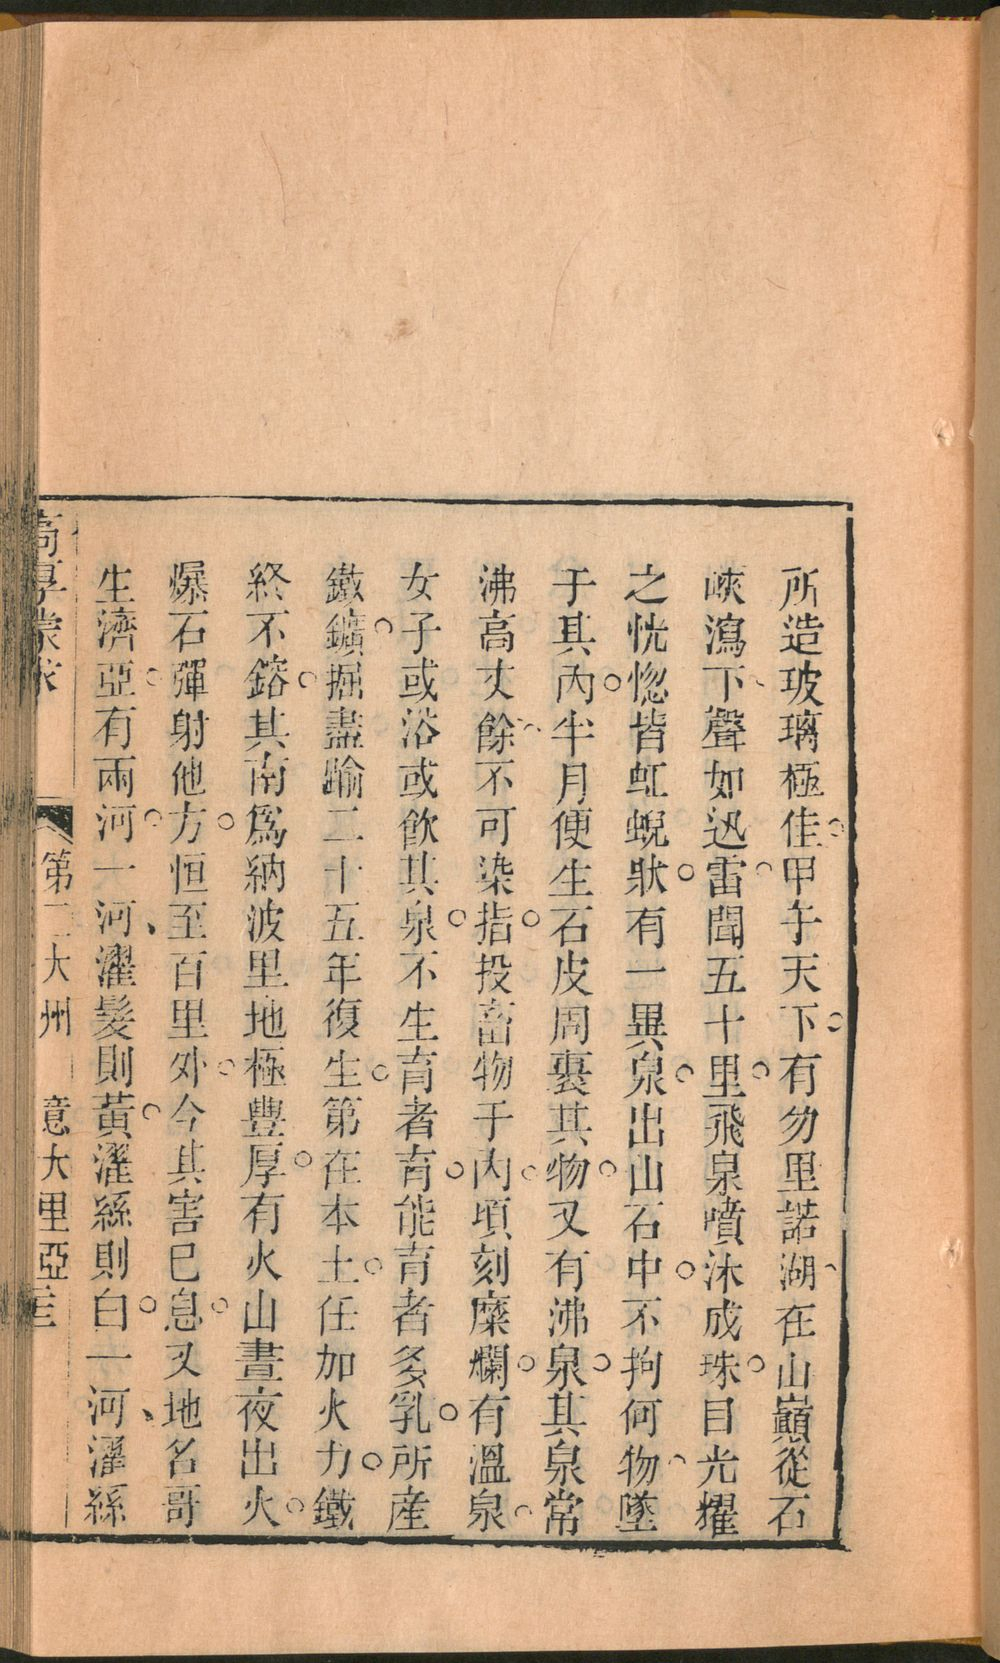 所造玻璃極佳甲午天下有勿里諾湖在山巔從石
峽瀉下聲如迅雷聞五十里飛泉噴沫成珠目光耀
之恍惚皆虹蜺狀有一異泉出山石中不拘何物墜
于其內半月便生石皮周裹其物又有沸泉其泉常
沸高丈餘不可染指投畜物于內頃刻糜爛有溫泉
女子或浴或飲其泉不生育者育能育者多乳所產
鐵鑛掘盡踰二十五年復生第在本土任加火力鐵
終不鎔其南爲納波里地極豐厚有火山晝夜出火
爆石彈射他方恒至百里外今其害已息又地名哥
生濟亞有兩河一河濯髮則黃濯絲則白一河濯絲
高厚蒙求 第二大州 意大里亞